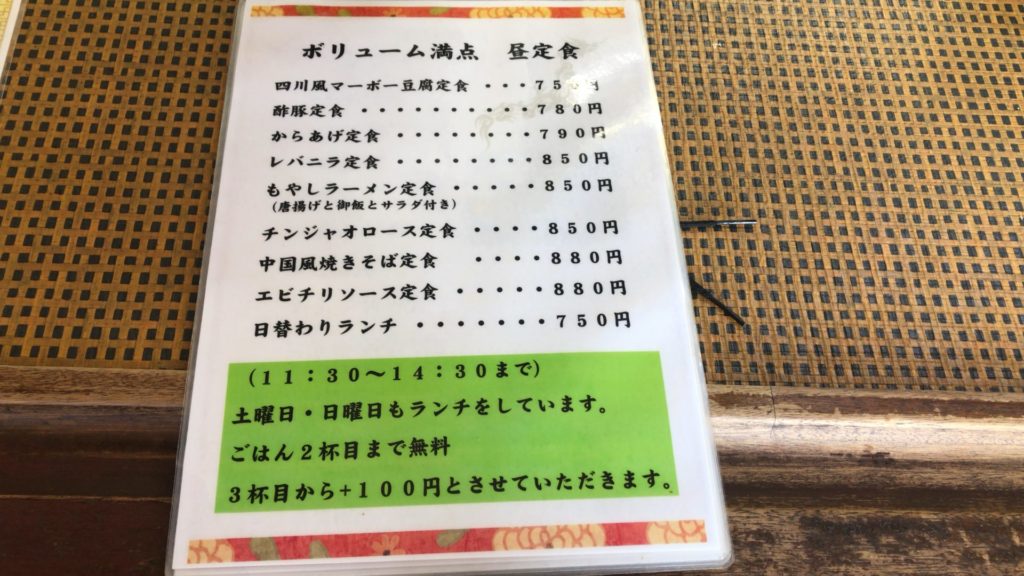 ボリューム満点　昼定食
四川風マーボー豆腐定食 ・・・７５０円
酢豚定食 ・・・・・・・・・・７８０円
からあげ定食 ・・・・・・・・・７９０円
レバニラ定食 ・・・・・・・・８５０円
もやしラーメン定食 ・・・・・８５０円
（唐揚げと御飯とサラダ付き）
チンジャオロース定食 ・・・・８５０円
中国風焼きそば定食　・・・・８８０円
エビチリソース定食 ・・・・・８８０円
日替わりランチ ・・・・・・・７５０円
（１１：３０～１４：３０まで）
土曜日・日曜日もランチをしています。
ごはん２杯目まで無料
３杯目から+１００円とさせていただきます。